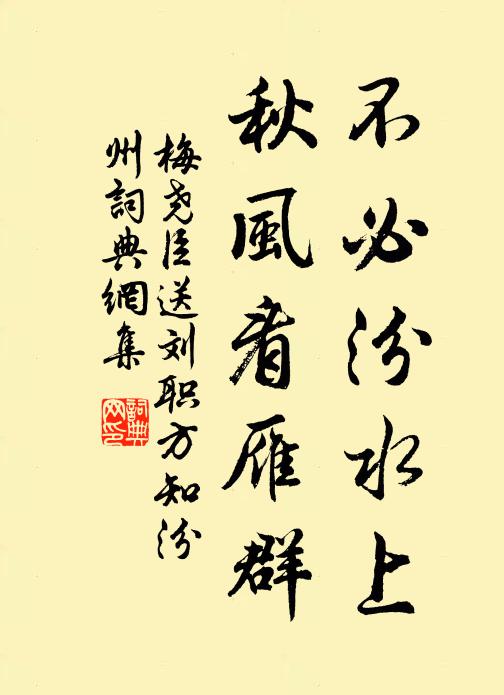 不必汾水上
秋風看雁群
梅尧臣送刘职方知汾
州詞典網集
詞典
网印